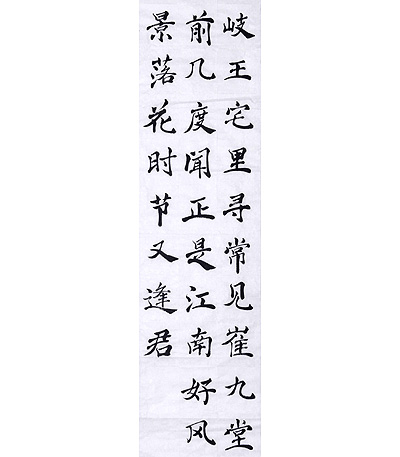 岐王宅里寻常见崔九堂
前几度闻正是江南好风
景落花时节又逢君